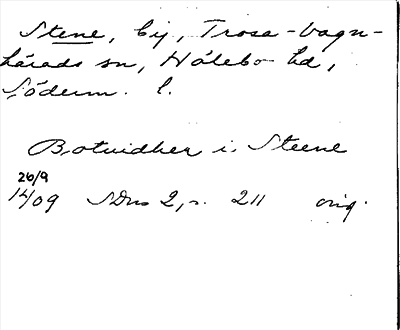 Stene, by, Trosa-Vagn-
härads sn, Hölebo hd,
Söderm. l.
Botvidher i Steene
26/9
14/09 SDns 2, s. 211 orig.